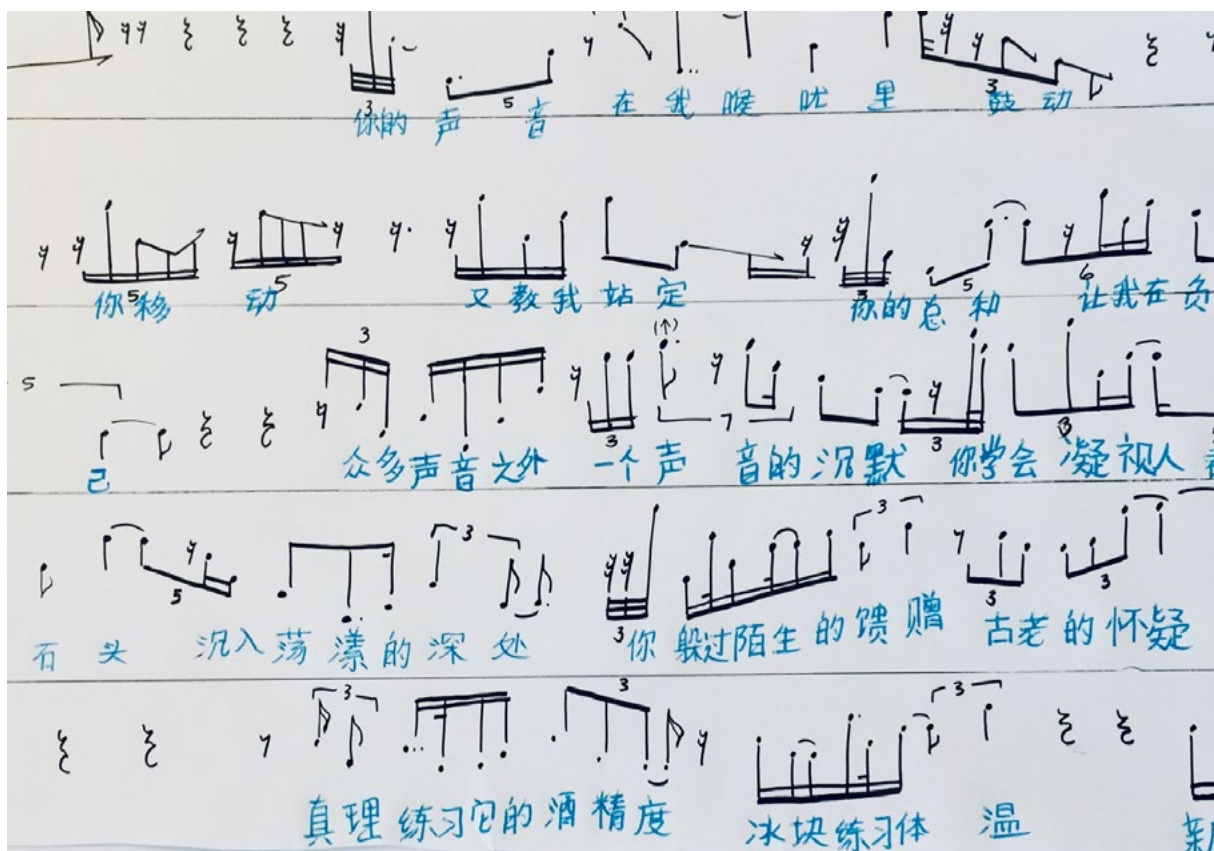 你的声音在我喉咙里鼓动
你移动又教我站定你的总和让我在负
己众多声音之外一个声音的沉默你学会凝视人
石头沉入荡漾的深处你躲过陌生的馈赠古老的怀疑
真理练习它的酒精度冰块练习体温